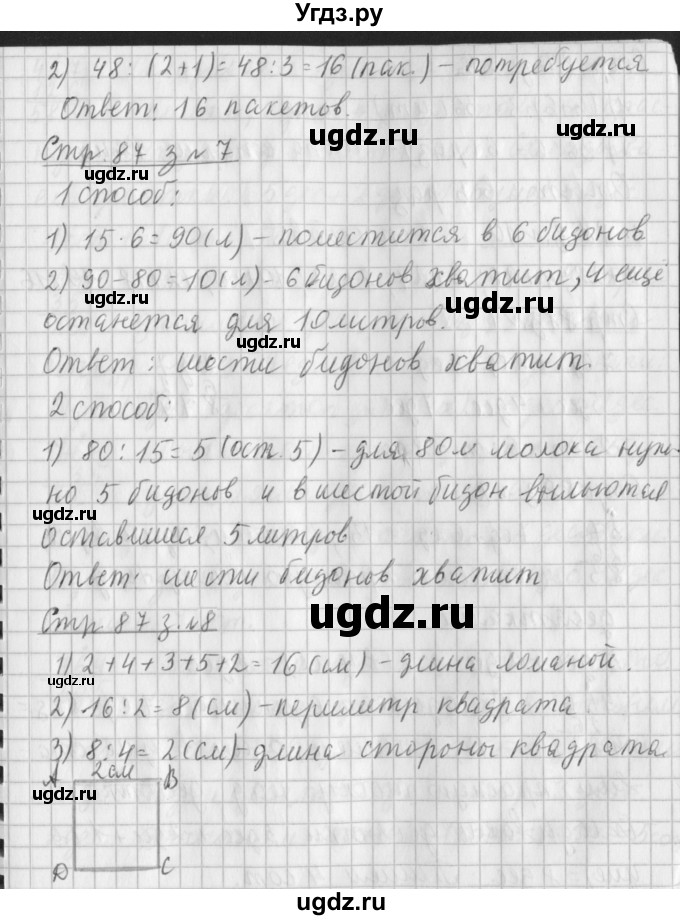 Угдз.ру
2) 48 : (2+1) = 48 : 3 = 16 (пак.) – потребуется
Ответ: 16 пакетов.
Стр. 87 з № 7
1 способ:
1) 15 · 6 = 90 (л) – поместится в 6 бидонов
2) 90 – 80 = 10 (л) – 6 бидонов хватит, и ещё
останется для 10 литров.
Ответ: шести бидонов хватит.
2 способ:
1) 80 : 15 = 5 (ост. 5) – для 80 л молока нуж-
но 5 бидонов и в шестой бидон выльются
оставшиеся 5 литров
Ответ: шести бидонов хватит
Стр 87 з. №8
1) 2+4+3+5+2 = 16 (см) – длина ломаной.
2) 16 : 2 = 8 (см) – периметр квадрата.
3) 8 : 4 = 2 (см) – длина стороны квадрата.
A 2 см B
D C
ugdz.ru
ugdz.ru
ugdz.ru
ugdz.ru
ugdz.ru
ugdz.ru
ugdz.ru
ugdz.ru
ugdz.ru
ugdz.ru
ugdz.ru